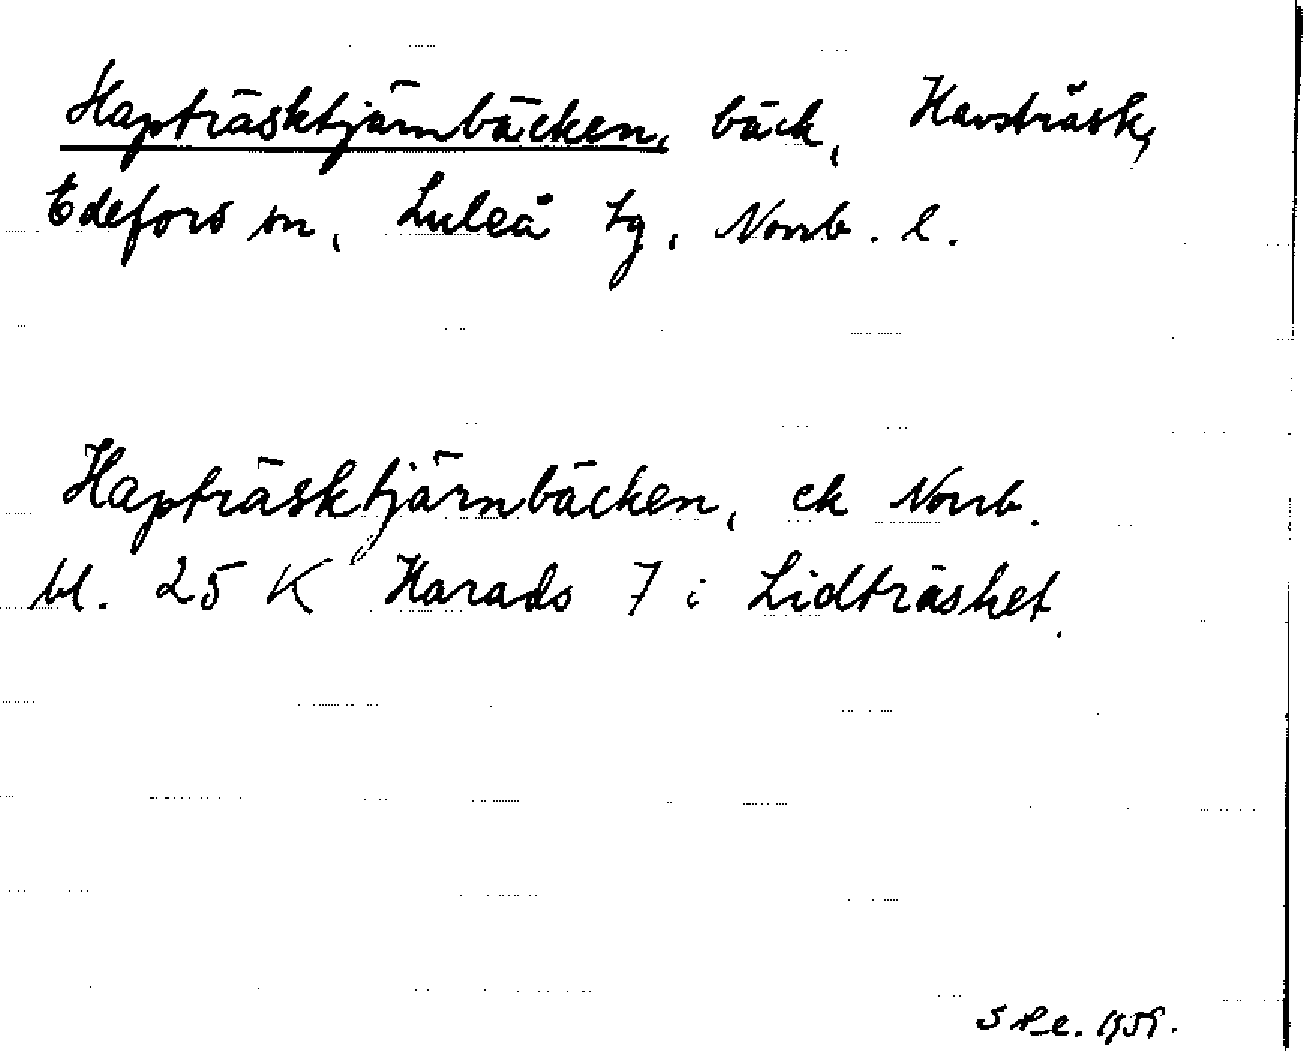 Hapträsktjärnbäcken, bäck, Havsträsk,
Edefors sn, Luleå tg, Norrb. l.
Hapträsktjärnbäcken, ek Norrb.
bl. 25 K Harads 7 i Lidträsket.